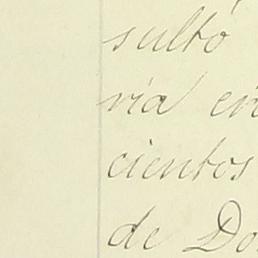 sultó
ria
cientos
de Do